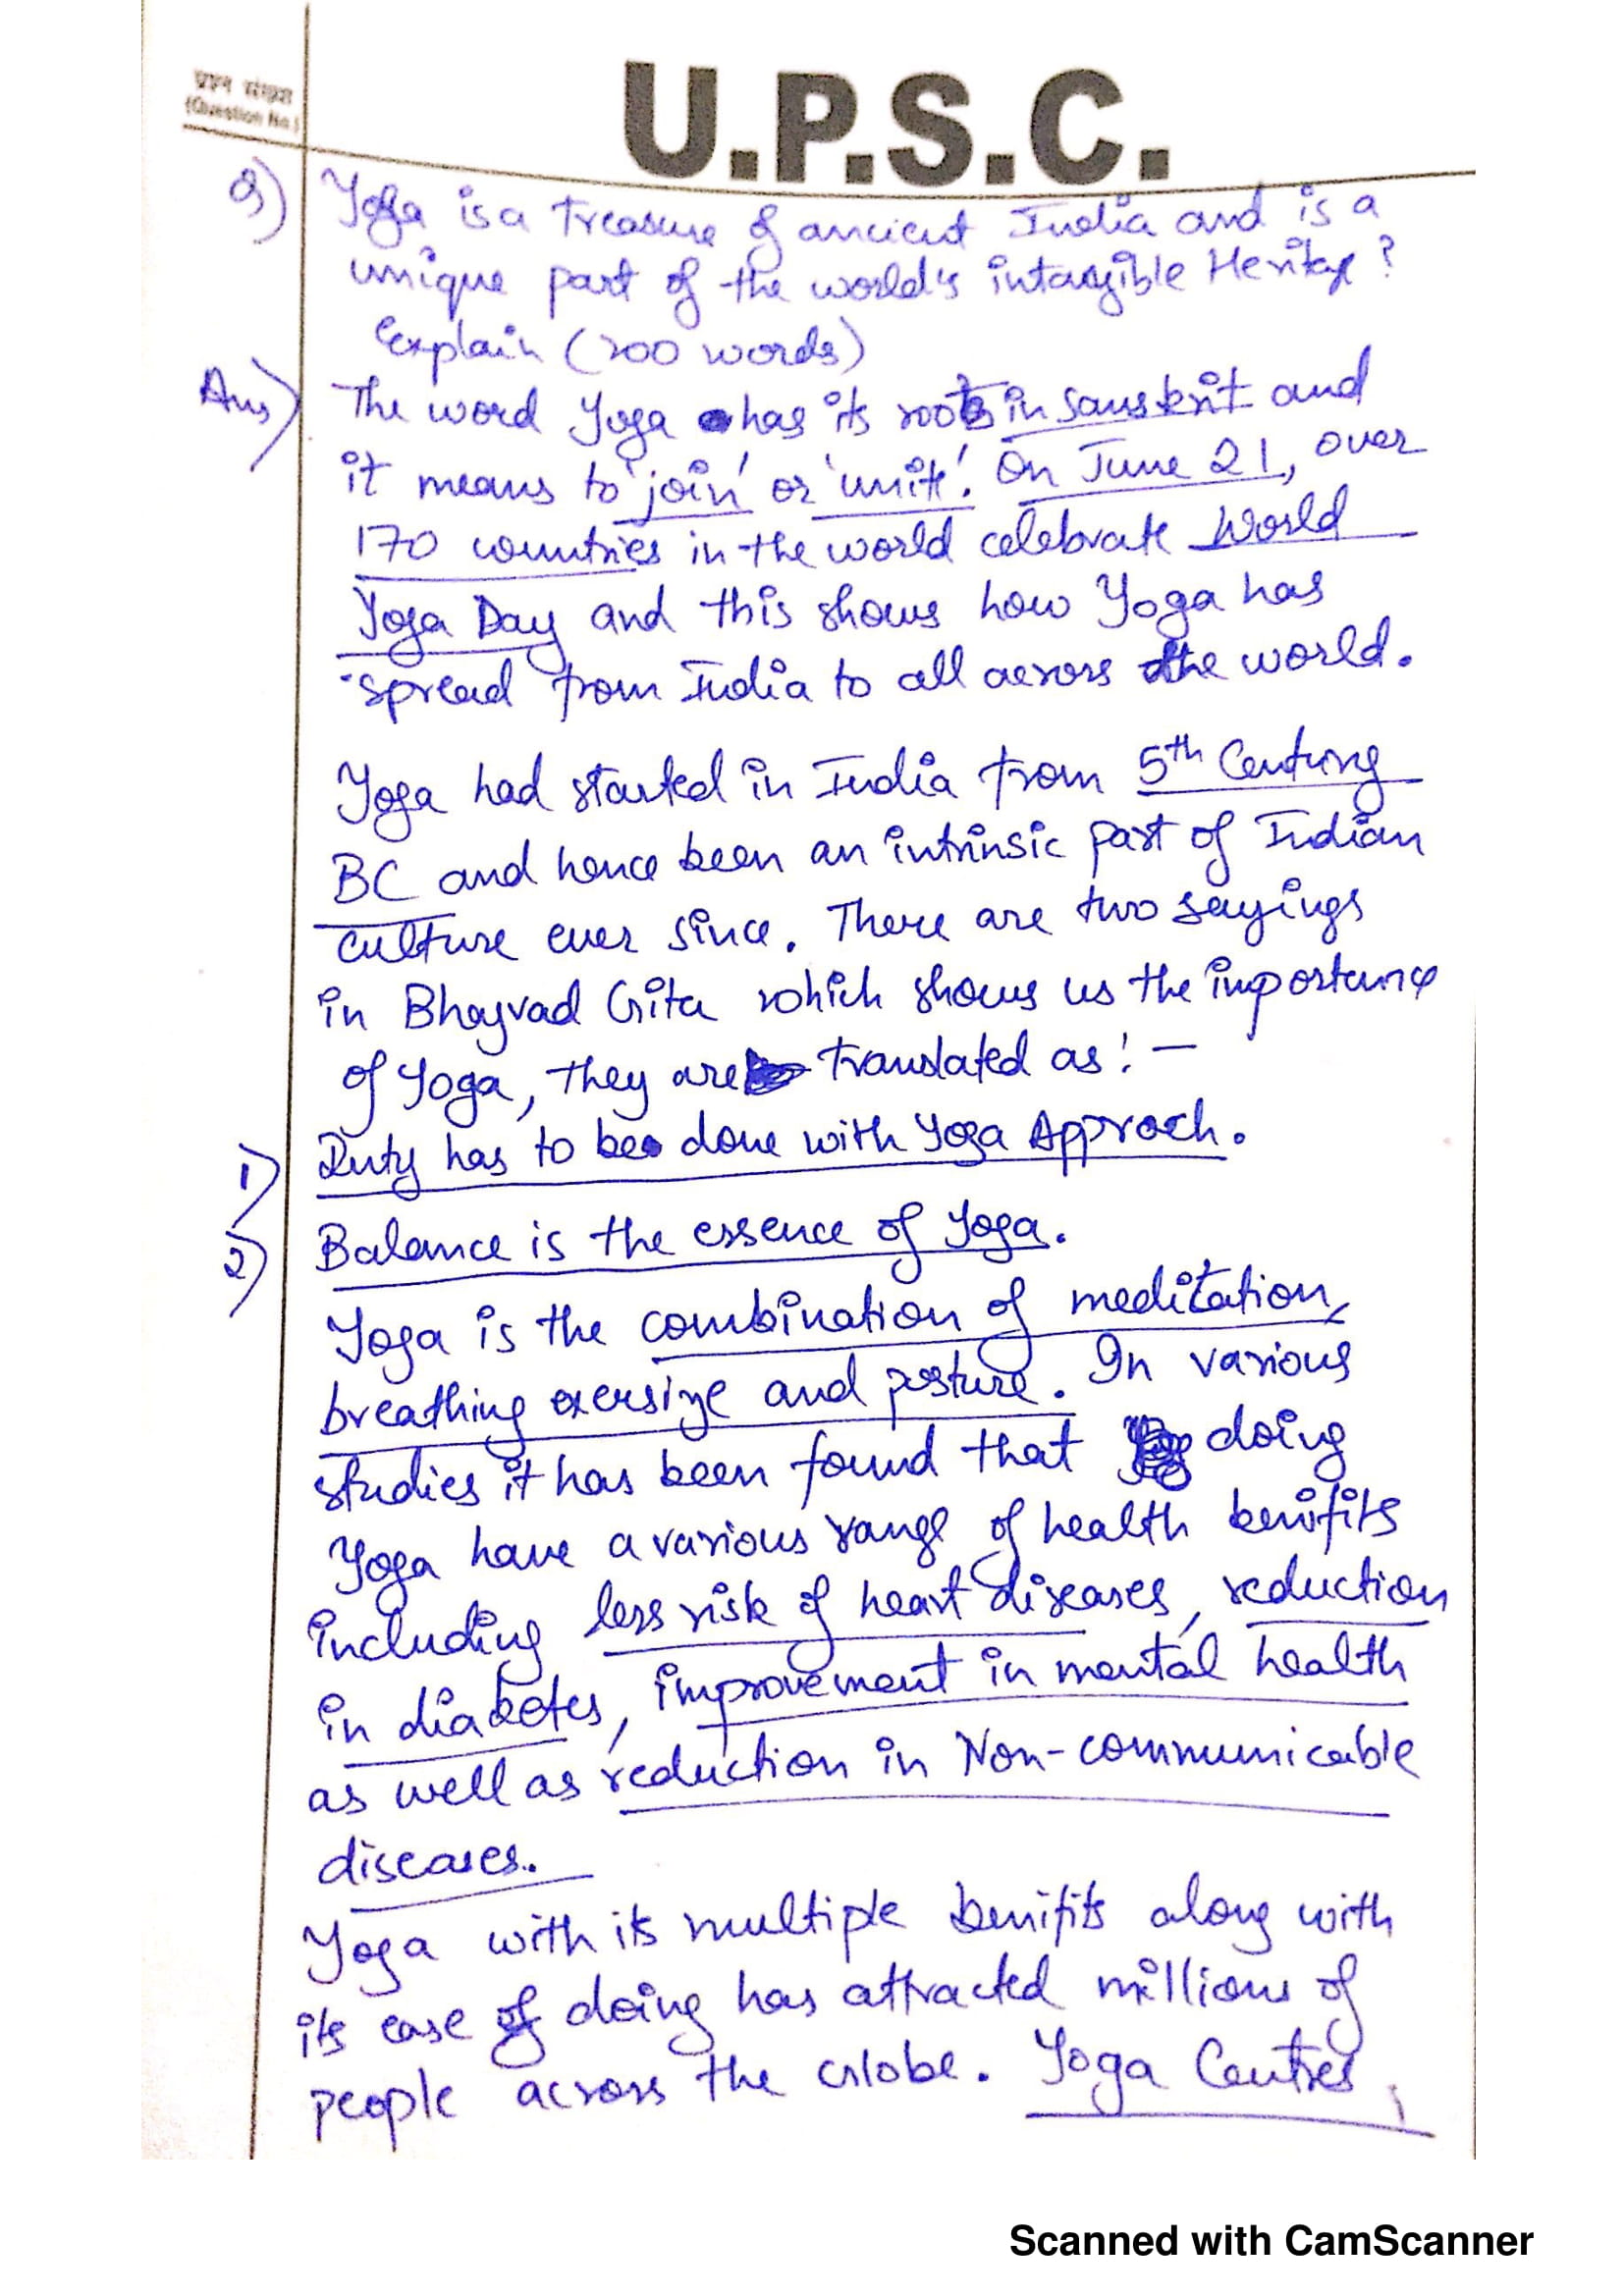 प्रश्न संख्या
(Question No.)
U.P.S.C.
Q) Yoga is a treasure of ancient India and is a
unique part of the world's intangible Heritage?
Explain (200 words)
Ans) The word Yoga has its roots in sanskrit and
it means to 'join' or 'unit'. On June 21, over
170 countries in the world celebrate World
Yoga Day and this shows how Yoga has
spread from India to all across the world.
Yoga had started in India from 5th Century
BC and hence been an intrinsic part of Indian
culture ever since. There are two sayings
in Bhagvad Gita which shows us the importance
of Yoga, they are translated as: -
1) Duty has to be done with Yoga Approch.
2) Balance is the essence of Yoga.
Yoga is the combination of meditation,
breathing exersize and posture. In various
studies it has been found that doing
Yoga have a various range of health benifits
including less risk of heart diseases, reduction
in diabetes, improvement in mental health
as well as reduction in Non-communicable
diseases.
Yoga with its multiple benifits along with
its ease of doing has attracted millions of
people across the Globe. Yoga Centres,
Scanned with CamScanner